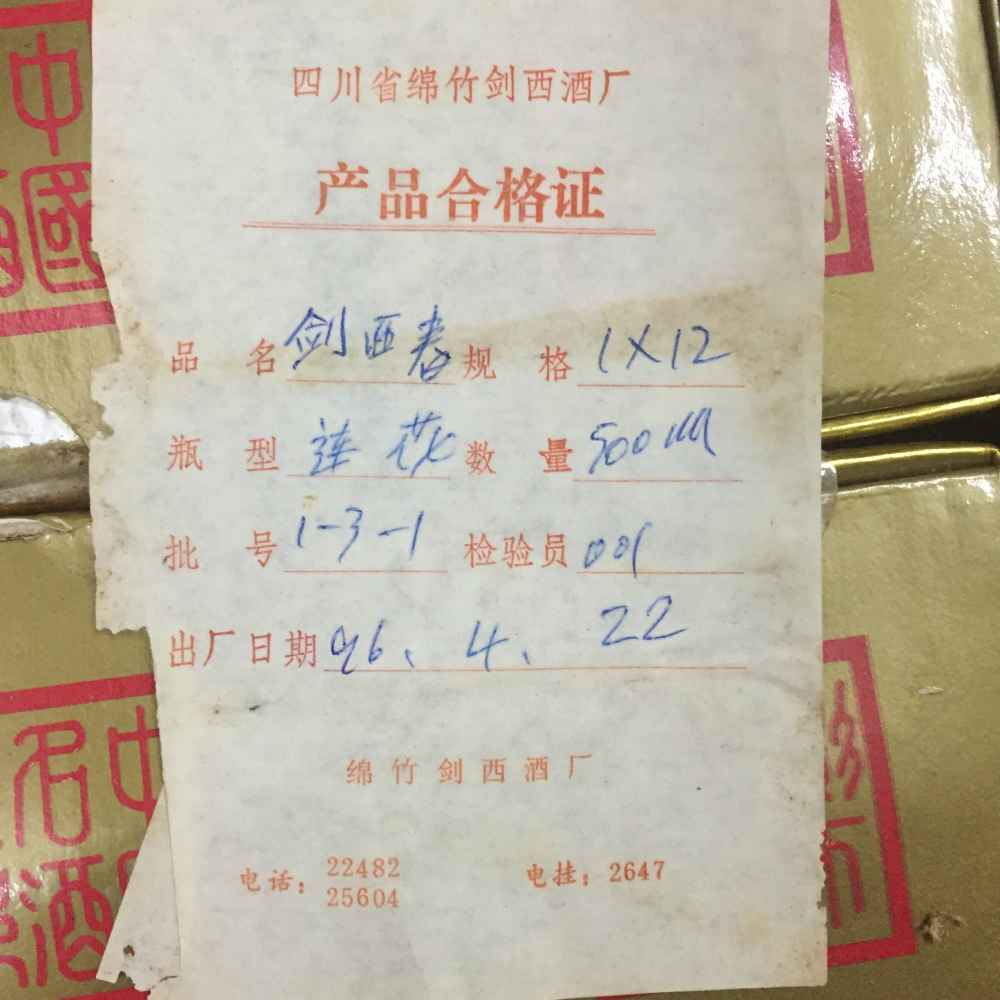 四川省绵竹剑西酒厂
产品合格证
品名 剑西春 规格 1×12
瓶型 莲花 数量 500ml
批号 1-3-1 检验员 001
出厂日期 96、4、22
绵竹剑西酒厂
电话：22482 电挂：2647
25604
中
國
名 中
酒